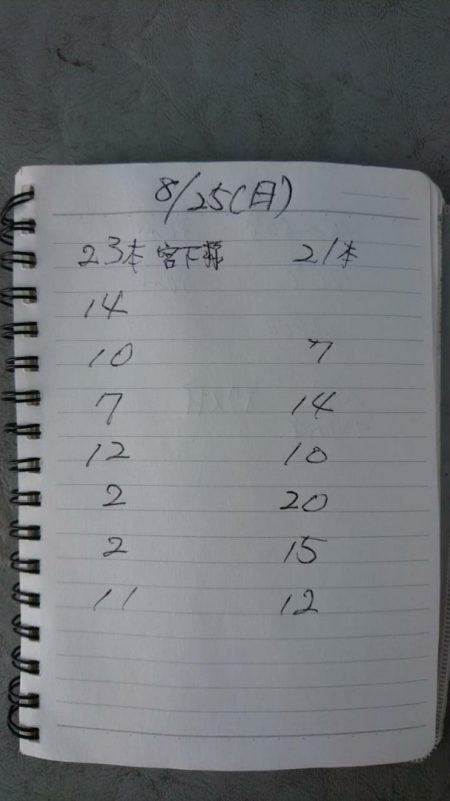 8/25(日)
23本 宮下様 21本
14
10 7
7 14
12 10
2 20
2 15
11 12